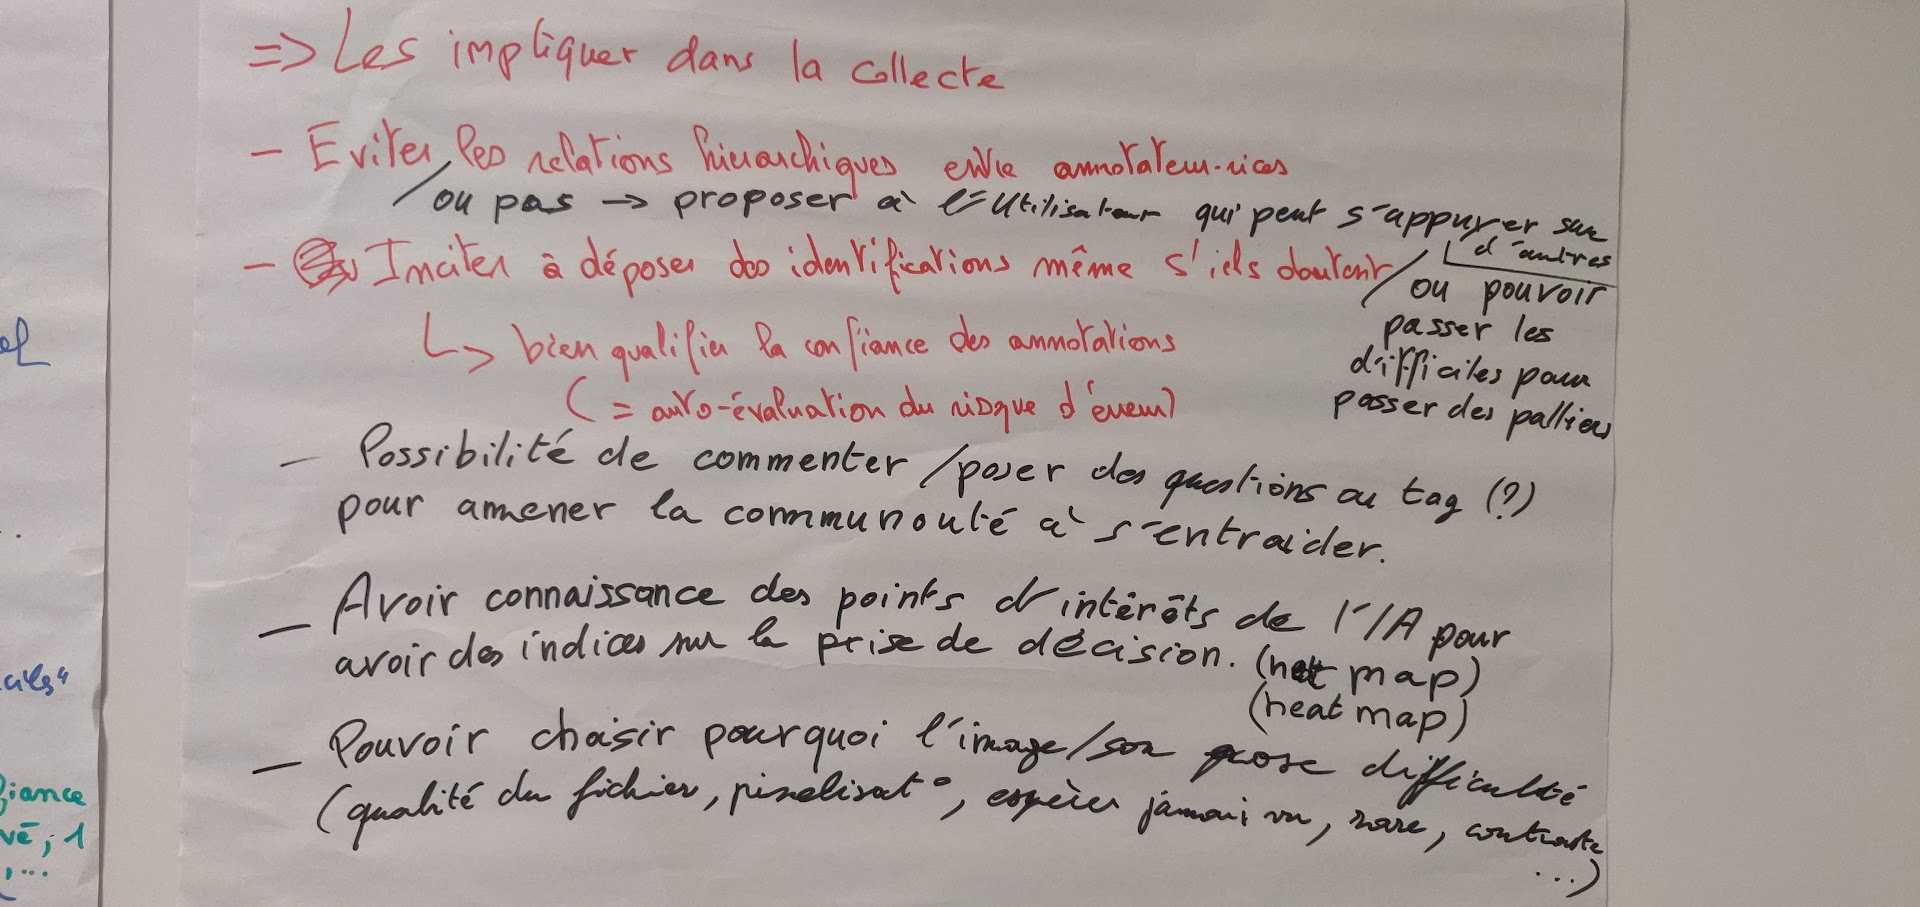 => Les impliquer dans la collecte
- Eviter les relations hiérarchiques entre annotateur·rices
/ou pas -> proposer à l'utilisateur qui peut s'appuyer sur
d'autres
- Inciter à déposer des identifications même s'iels doutent
/ ou pouvoir
passer les
difficiles pour
passer des palliers
↳ bien qualifier la confiance des annotations
(= auto-évaluation du risque d'erreur)
- Possibilité de commenter /poser des questions ou tag (?)
pour amener la communouté à s'entraider.
- Avoir connaissance des points d'intérêts de l'IA pour
avoir des indices sur la prise de décision. (heat map)
(heat map)
- Pouvoir choisir pourquoi l'image/son pose difficulté
(qualité du fichier, pixelisat°, espèces jamais vu, rare, contraste
...)
el
...
iance
vé, 1
, ...